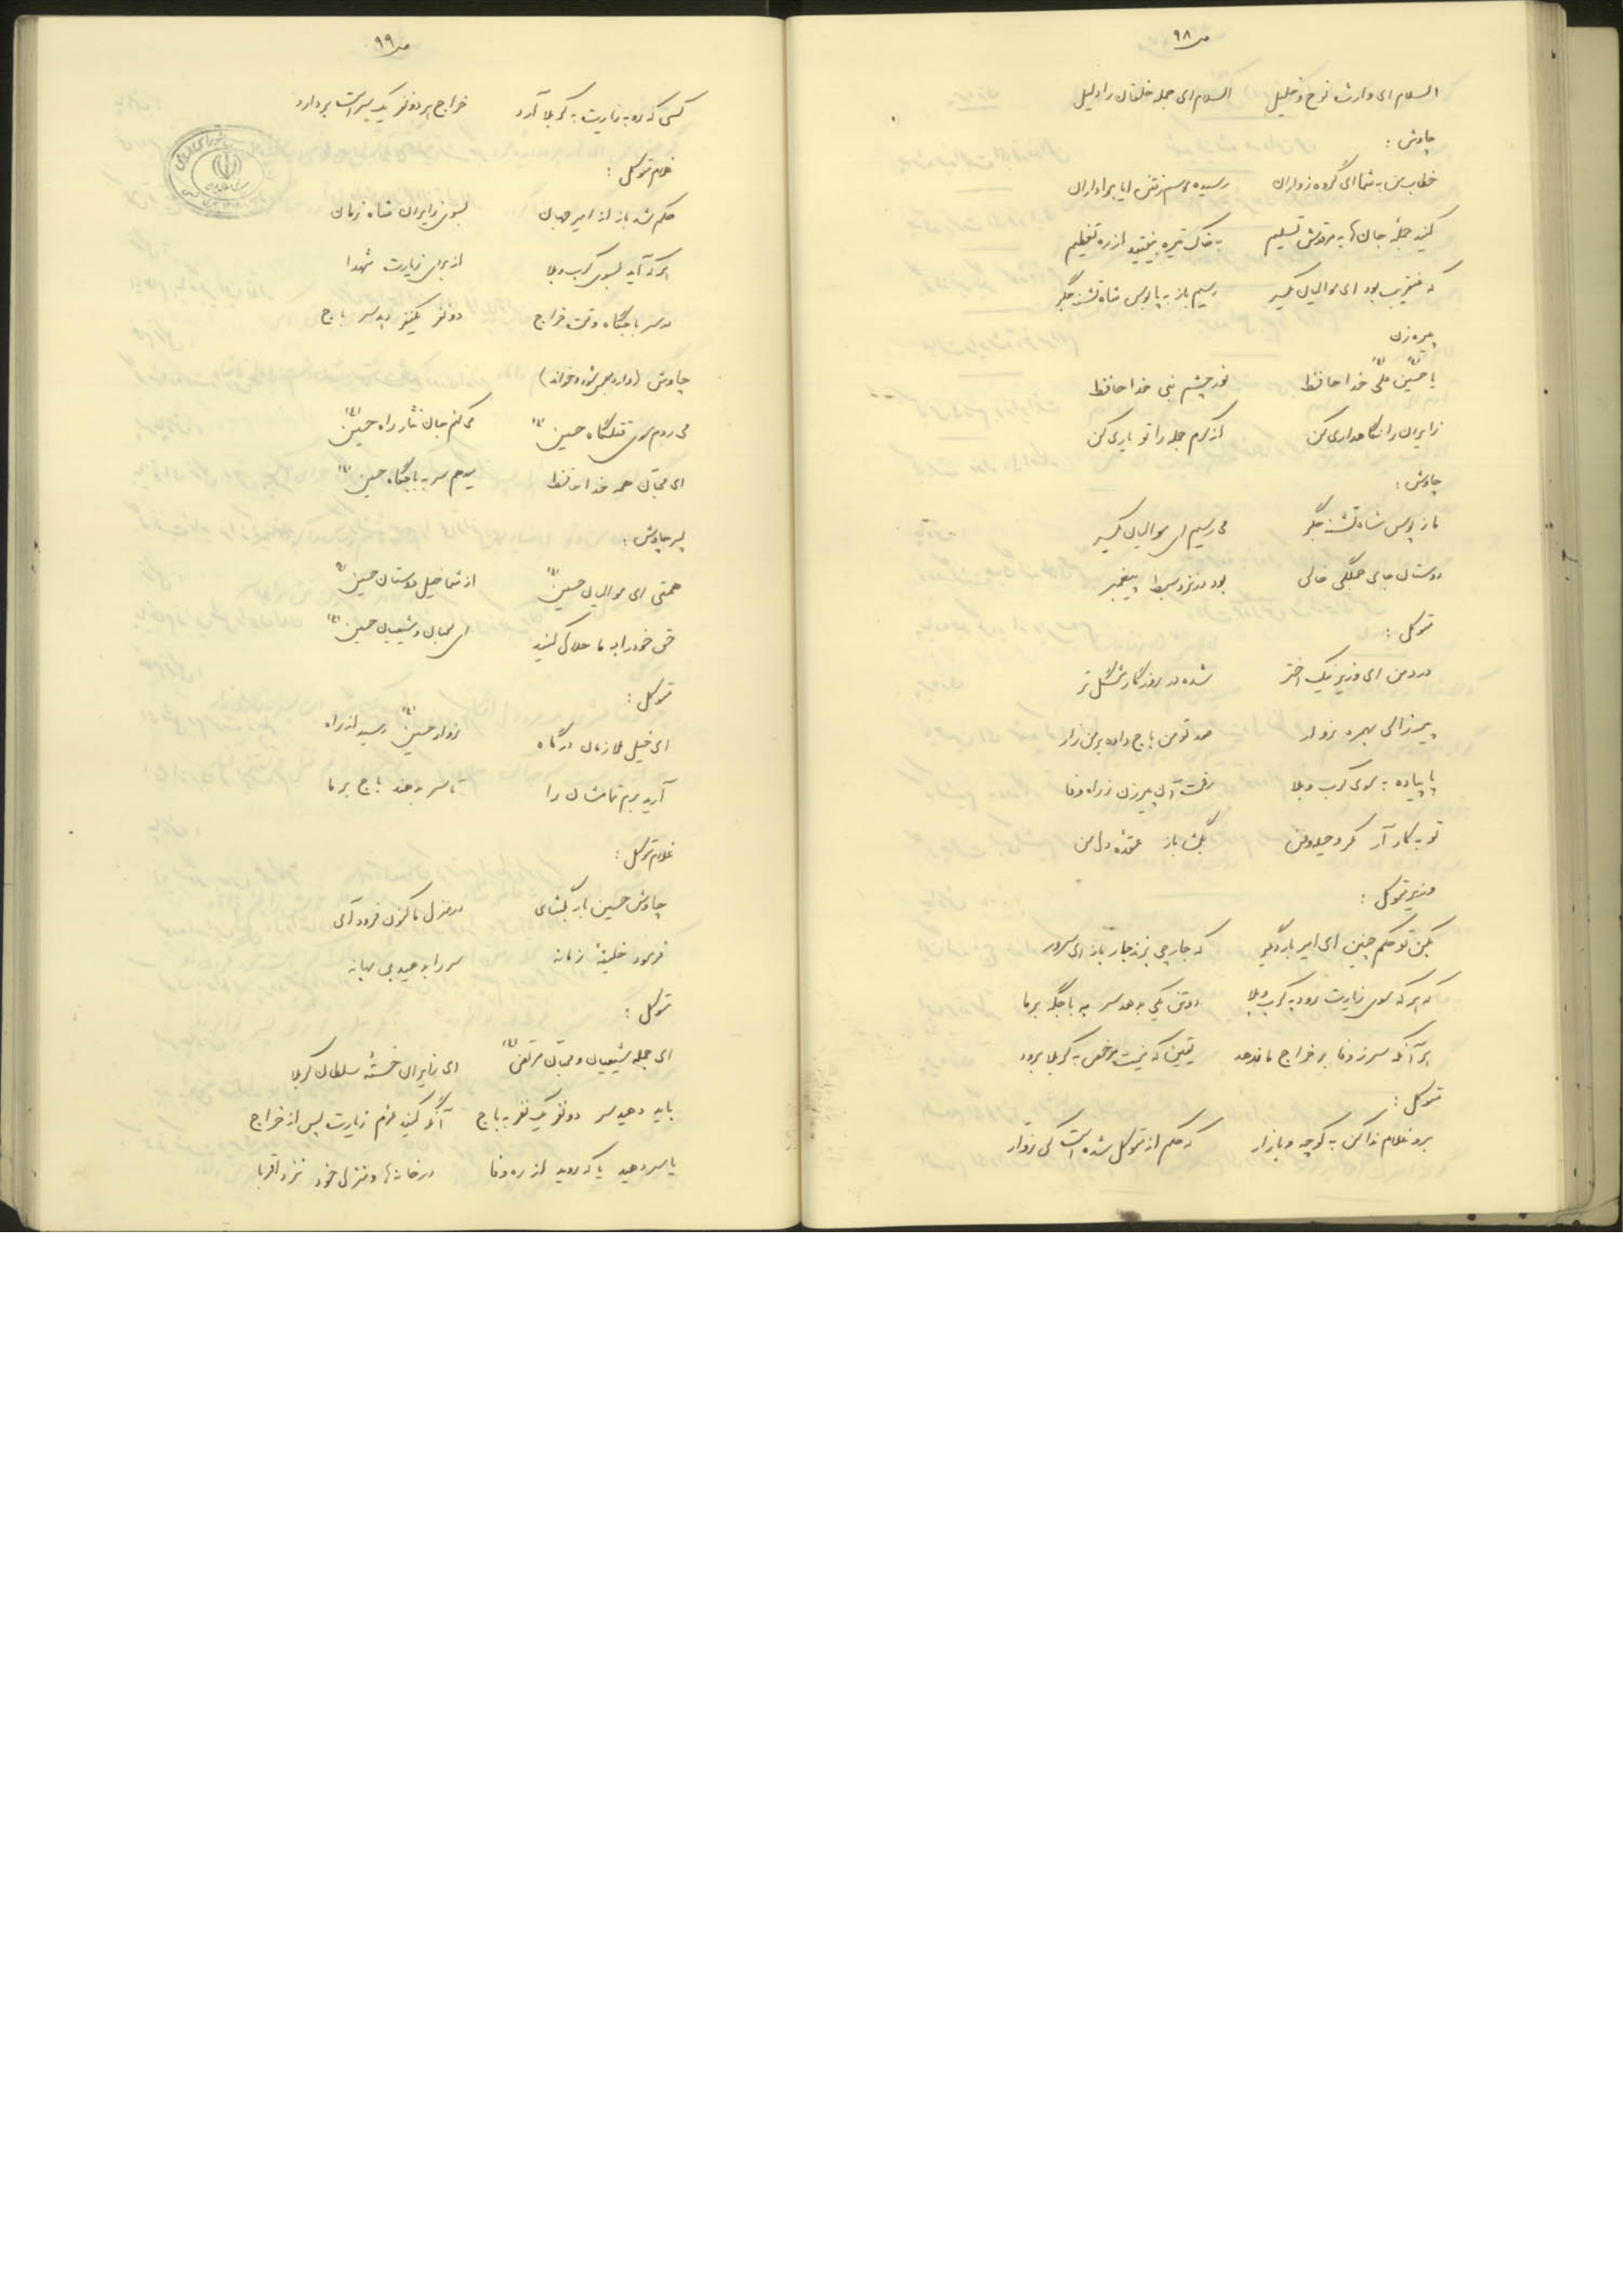 ص ۹۸
السلام ای وارث نوح و خلیل السلام ای جمله خلقان را دلیل
چاوش :
خطاب من به شما ای گروه زواران رسیده موسم رفتن ایا هواداران
کنید جمله جان‌ها به مرقدش تسلیم به خاک تیره بیفتید از ره تعظیم
که عنقریب بود ای موالیان یکسر رسیم باز به پابوس شاه تشنه جگر
پیره زن
یا حسین علی خدا حافظ نور چشم نبی خدا حافظ
زایران را نگاهداری کن از کرم جمله را تو یاری کن
چاوش :
باز پابوس شاه تشنه جگر می رسیم ای موالیان یکسر
دوستان جای جملگی خالی بود در نزد سبط پیغمبر
متوکل :
درد من ای وزیر نیک اختر شده در روزگار مشگل تر
پیر زالی بهره زوار صد تومن باج داده بر من زار
پا پیاده به سوی کرب و بلا رفت آن پیرزن ز راه وفا
تو به کار آر مکر و حیله و فن بگشا باز عقده دل من
وزیر متوکل :
بکن تو حکم چنین ای امیر بار دگر که جارچی بزند جار باز ای سرور
که هر که سوی زیارت رود به کرب و بلا دو تن یکی بدهد سر به باجگه بر ما
هر آنکه سر ز وفا بر خراج ما ندهد یقین که نیست مرخص به کربلا برود
متوکل :
برو غلام ندا کن به کوچه و بازار که حکم از متوکل شده است کی زوار
ص ۹۹
کسی که رو به زیارت به کربلا آرد خراج هر دو نفر یک سر است بردارد
غلام متوکل :
حکم شد باز از امیر جهان بسوی زایران شاه زمان
هر که آید بسوی کرب و بلا از برای زیارت شهدا
در سر باجگاه وقت خراج دو نفر یکنفر بدسر باج
چاوش (وارد مجلس شود و خواند)
می روم سوی قتلگاه حسین می کنم جان نثار راه حسین
ای محبان همه خدا حافظ میدهم سر به باجگاه حسین
پسر چاوش :
همتی ای موالیان حسین از شما خیل دوستان حسین
حق خود را به ما حلال کنید ای محبان و شیعیان حسین
متوکل :
ای خیل ملازمان درگاه زوار حسین رسید از راه
آرید برم تمامشان را تا سر بدهند باج بر ما
غلام متوکل :
چاوش حسین بار بگشای در منزل ما کنون فرود آی
فرمود خلیفه زمانه سر را بدهید بی بهانه
متوکل :
ای جمله شیعیان و محبان مرتضی ای زایران خسته سلطان کربلا
باید دهید سر دو نفر یک نفر به باج آنگه کنید عزم زیارت پس از خراج
یا سر دهید یا که روید از ره وفا در خانه‌ها و منزل خود نزد اقربا